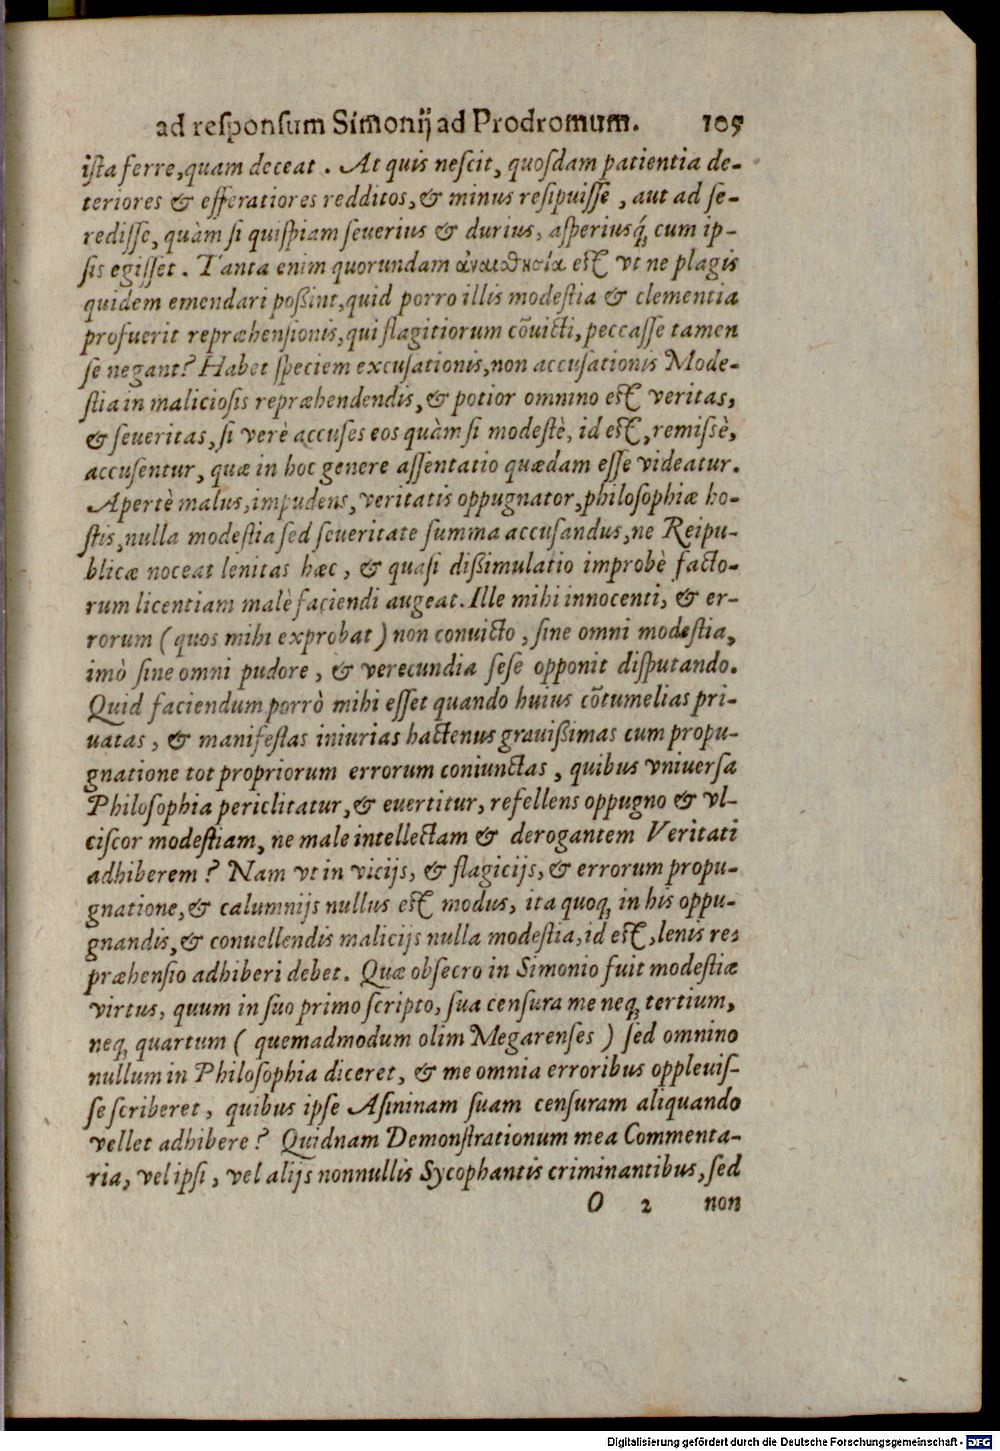 ad responsum Simonij ad Prodromum. 105
ista ferre, quam deceat. At quis nescit, quosdam patientia de-
teriores & efferatiores redditos, & minus resipuisse, aut ad se-
redisse, quàm si quispiam severius & durius, asperiusq́; cum ip-
sis egisset. Tanta enim quorundam ἀναισθησία est vt ne plagis
quidem emendari poßint, quid porro illis modestia & clementia
profuerit repræhensionis, qui flagitiorum cõvicti, peccasse tamen
se negant? Habet speciem excusationis, non accusationis Mode-
stia in maliciosis repræhendendis, & potior omnino est veritas,
& seueritas, si verè accuses eos quàm si modestè, id est, remissè,
accusentur, quæ in hoc genere assentatio quædam esse videatur.
Apertè malus, impudens, veritatis oppugnator, philosophiæ ho-
stis, nulla modestia sed seueritate summa accusandus, ne Reipu-
blicæ noceat lenitas hæc, & quasi dißimulatio improbè facto-
rum licentiam malè faciendi augeat. Ille mihi innocenti, & er-
rorum (quos mihi exprobat) non convicto, sine omni modestia,
imò sine omni pudore, & verecundia sese opponit disputando.
Quid faciendum porrò mihi esset quando huius cõtumelias pri-
uatas, & manifestas iniurias hactenus grauißimas cum propu-
gnatione tot propriorum errorum coniunctas, quibus vniuersa
Philosophia periclitatur, & euertitur, refellens oppugno & vl-
ciscor modestiam, ne male intellectam & derogantem Veritati
adhiberem? Nam vt in vicijs, & flagicijs, & errorum propu-
gnatione, & calumnijs nullus est modus, ita quoq; in his oppu-
gnandis, & conuellendis malicijs nulla modestia, id est, lenis re-
præhensio adhiberi debet. Quæ obsecro in Simonio fuit modestiæ
virtus, quum in suo primo scripto, sua censura me neq; tertium,
neq; quartum (quemadmodum olim Megarenses) sed omnino
nullum in Philosophia diceret, & me omnia erroribus oppleuis-
se scriberet, quibus ipse Asininam suam censuram aliquando
vellet adhibere? Quidnam Demonstrationum mea Commenta-
ria, vel ipsi, vel alijs nonnullis Sycophantis criminantibus, sed
O 2 non
Digitalisierung gefördert durch die Deutsche Forschungsgemeinschaft - DFG